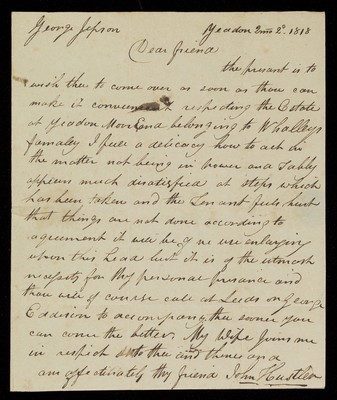 George Jepson Yeadon 2mo 2d. 1818
Dear friend
the present is to
wish thee to come over as soon as thou can
make it convenient respecting the Estate
at Yeadon Moor End belonging to Whalleys
famaley I feel a delicacy how to act in
the matter not being in power and Sabley
appears much disatisfied at steps which
has been taken and the Tenant feels hurt
that things are not done according to
agreement it will be of no use enlarging
upon this Head but it is of the utmost
necessity for thy personal presance and
thou will of course call at Leeds on George
Eddison to accompany, the sooner you
can come the better, My Wife Joins me
in respect to thee and thine and
am affectinately thy friend John Hustler